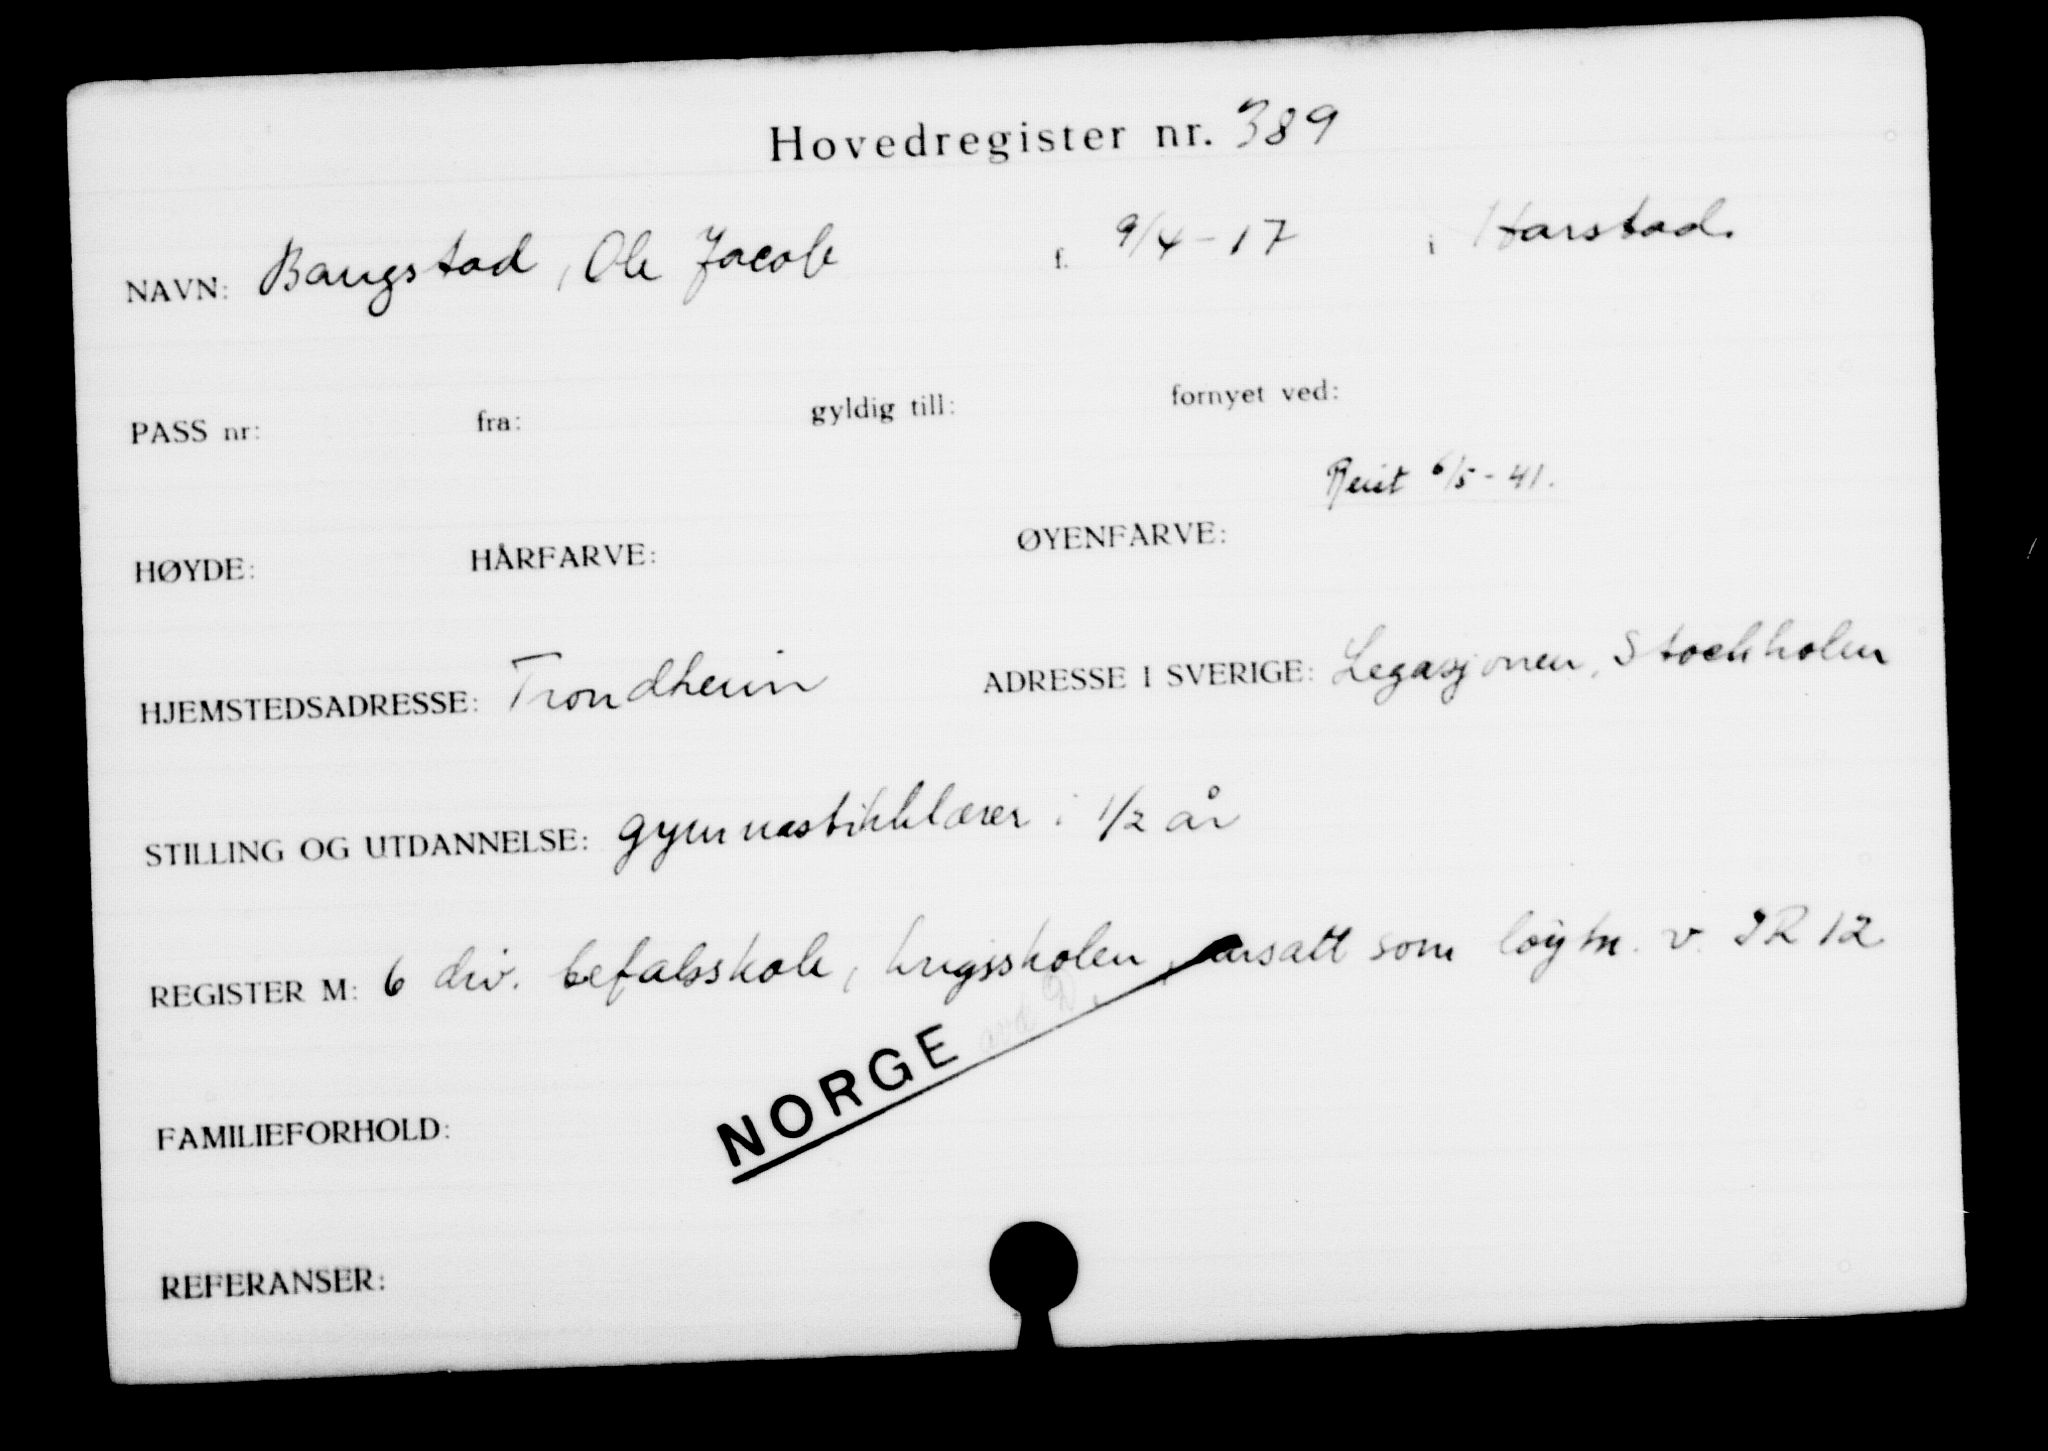 Hovedregister nr. 389
NAVN: Bangstad, Ole Jacob f. 9/4-17 i Harstad.
PASS nr: fra: gyldig till: fornyet ved:
Reist 6/5-41.
HØYDE: HÅRFARVE: ØYENFARVE:
HJEMSTEDSADRESSE: Trondheim ADRESSE I SVERIGE: Legasjonen, Stockholm
STILLING OG UTDANNELSE: gymnastikklærer i 1/2 år
REGISTER M: 6 div. befalsskole, krigsskolen, ansatt som løytn. v. IR 12
NORGE
FAMILIEFORHOLD:
REFERANSER: